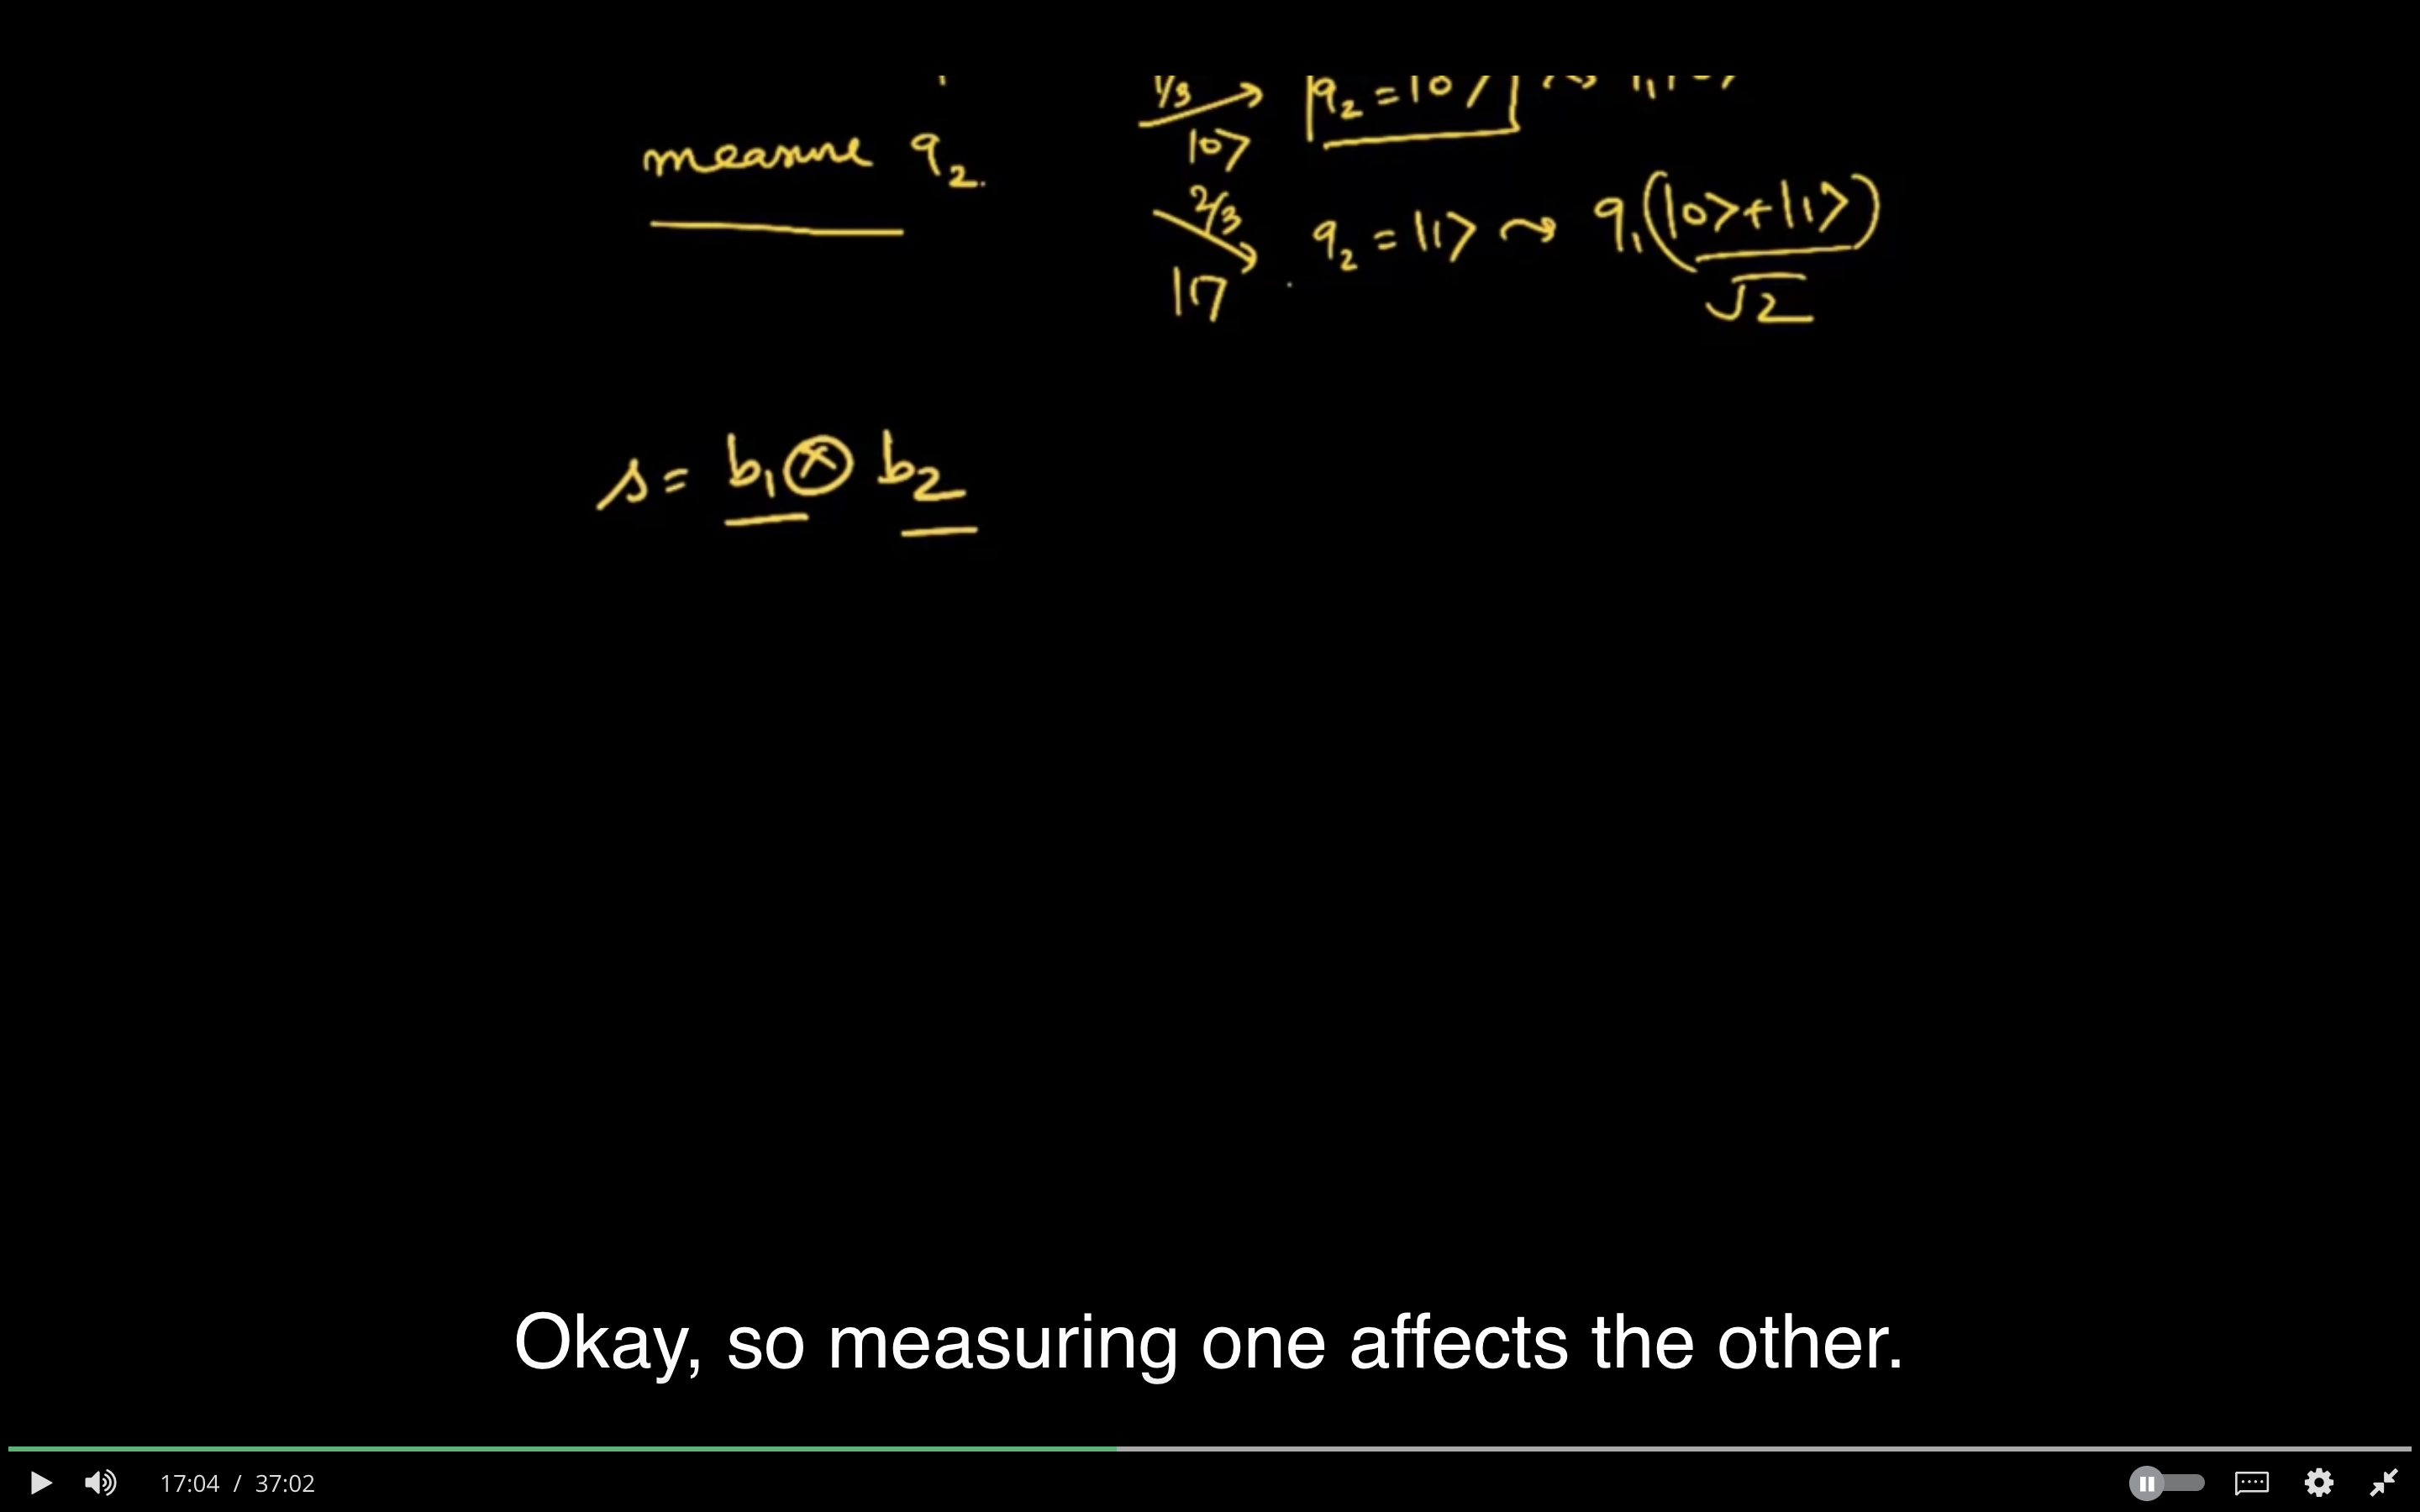 1/3 |0> q₂ = |0>
measure q₂.
2/3 |1> q₂ = |1> ⇝ q₁(|0>+|1>)/√2
s = b₁ ⊗ b₂
Okay, so measuring one affects the other.
17:04 / 37:02